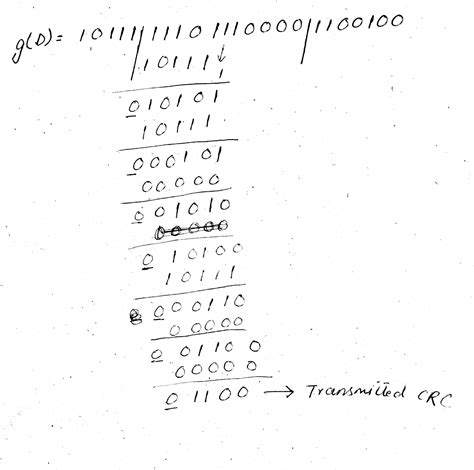 g(D) = 10111 ) 1110 1110000 ( 1100100
10111 ↓
010101
10111
000101
00000
001010
00000
010100
10111
000110
00000
01100
00000
01100 → Transmitted CRC